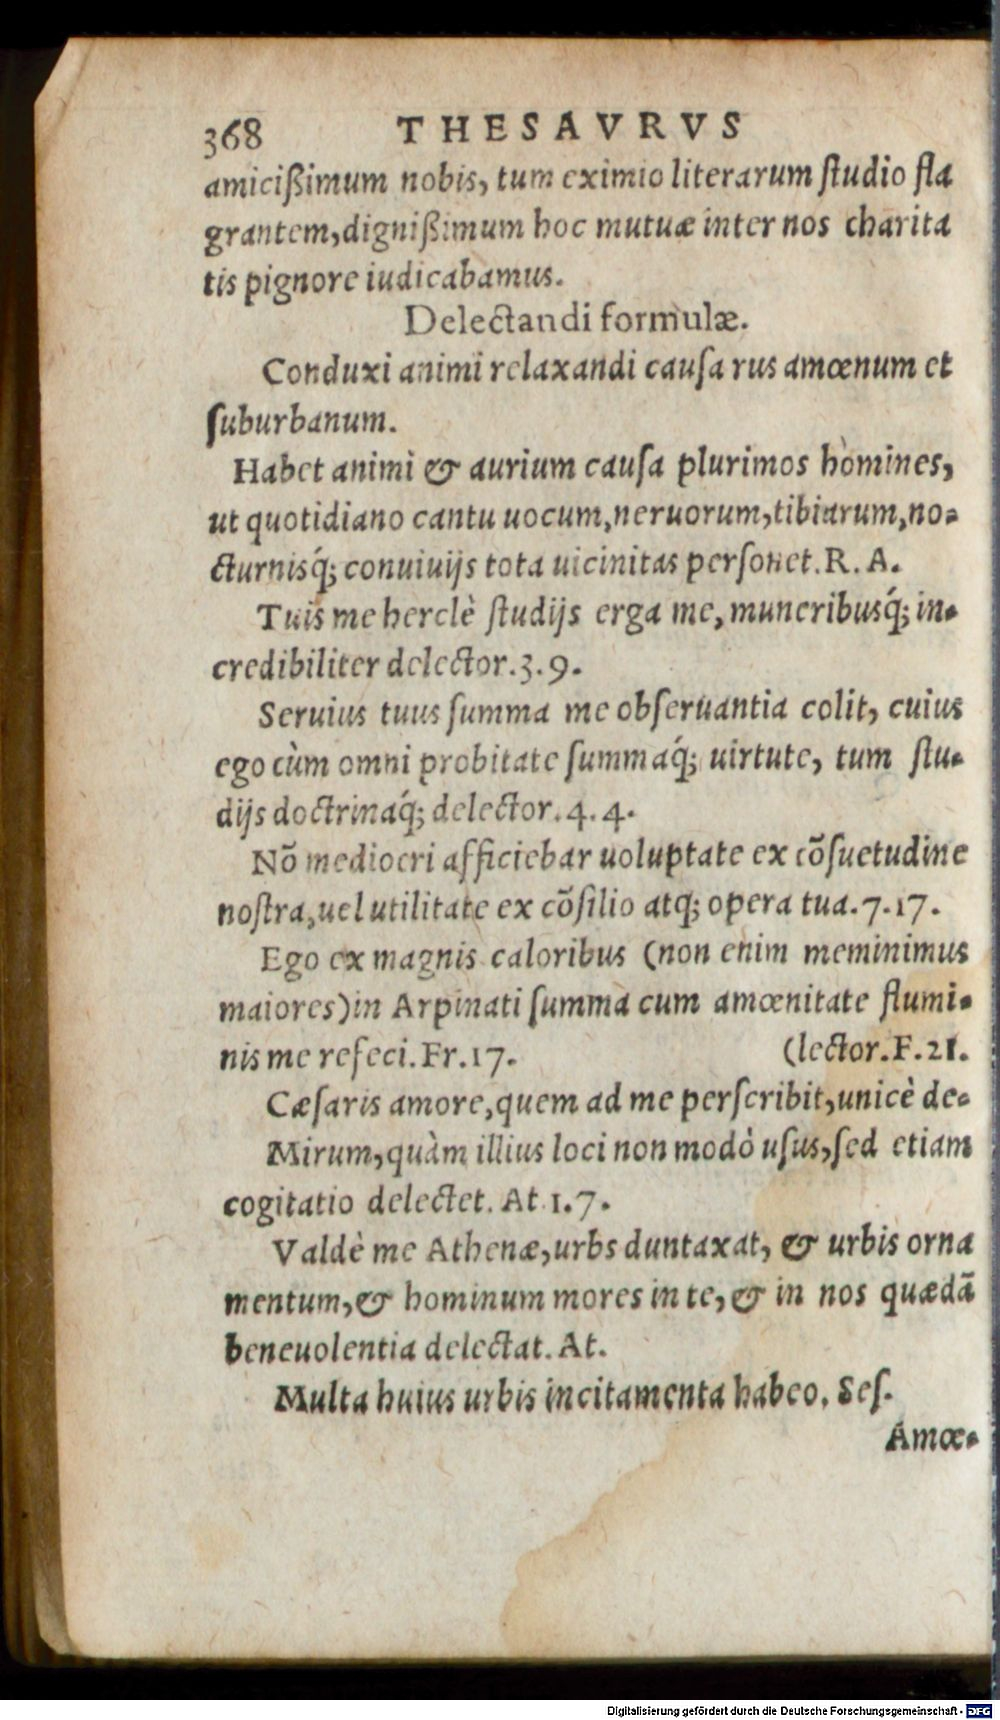 368 THESAVRVS
amicißimum nobis, tum eximio literarum ſtudio fla
grantem, dignißimum hoc mutuæ inter nos charita
tis pignore iudicabamus.
Delectandi formulæ.
Conduxi animi relaxandi cauſa rus amœnum et
ſuburbanum.
Habet animi & aurium cauſa plurimos homines,
ut quotidiano cantu uocum, neruorum, tibiarum, no-
cturnisq́; conuiuijs tota uicinitas perſonet. R. A.
Tuis me herclè ſtudijs erga me, muneribusq́; in-
credibiliter delector. 3. 9.
Seruius tuus ſumma me obſeruantia colit, cuius
ego cùm omni probitate ſummaq́; uirtute, tum ſtu-
dijs doctrinaq́; delector. 4. 4.
Nō mediocri afficiebar uoluptate ex cōſuetudine
noſtra, uel utilitate ex cōſilio atq; opera tua. 7. 17.
Ego ex magnis caloribus (non enim meminimus
maiores) in Arpinati ſumma cum amœnitate flumi-
nis me refeci. Fr. 17. (lector. F. 21.
Cæſaris amore, quem ad me perſcribit, unicè de-
Mirum, quàm illius loci non modò uſus, ſed etiam
cogitatio delectet. At. 1. 7.
Valdè me Athenæ, urbs duntaxat, & urbis orna
mentum, & hominum mores in te, & in nos quædā
beneuolentia delectat. At.
Multa huius urbis incitamenta habeo. Seſ.
Amœ-
Digitalisierung gefördert durch die Deutsche Forschungsgemeinschaft - DFG